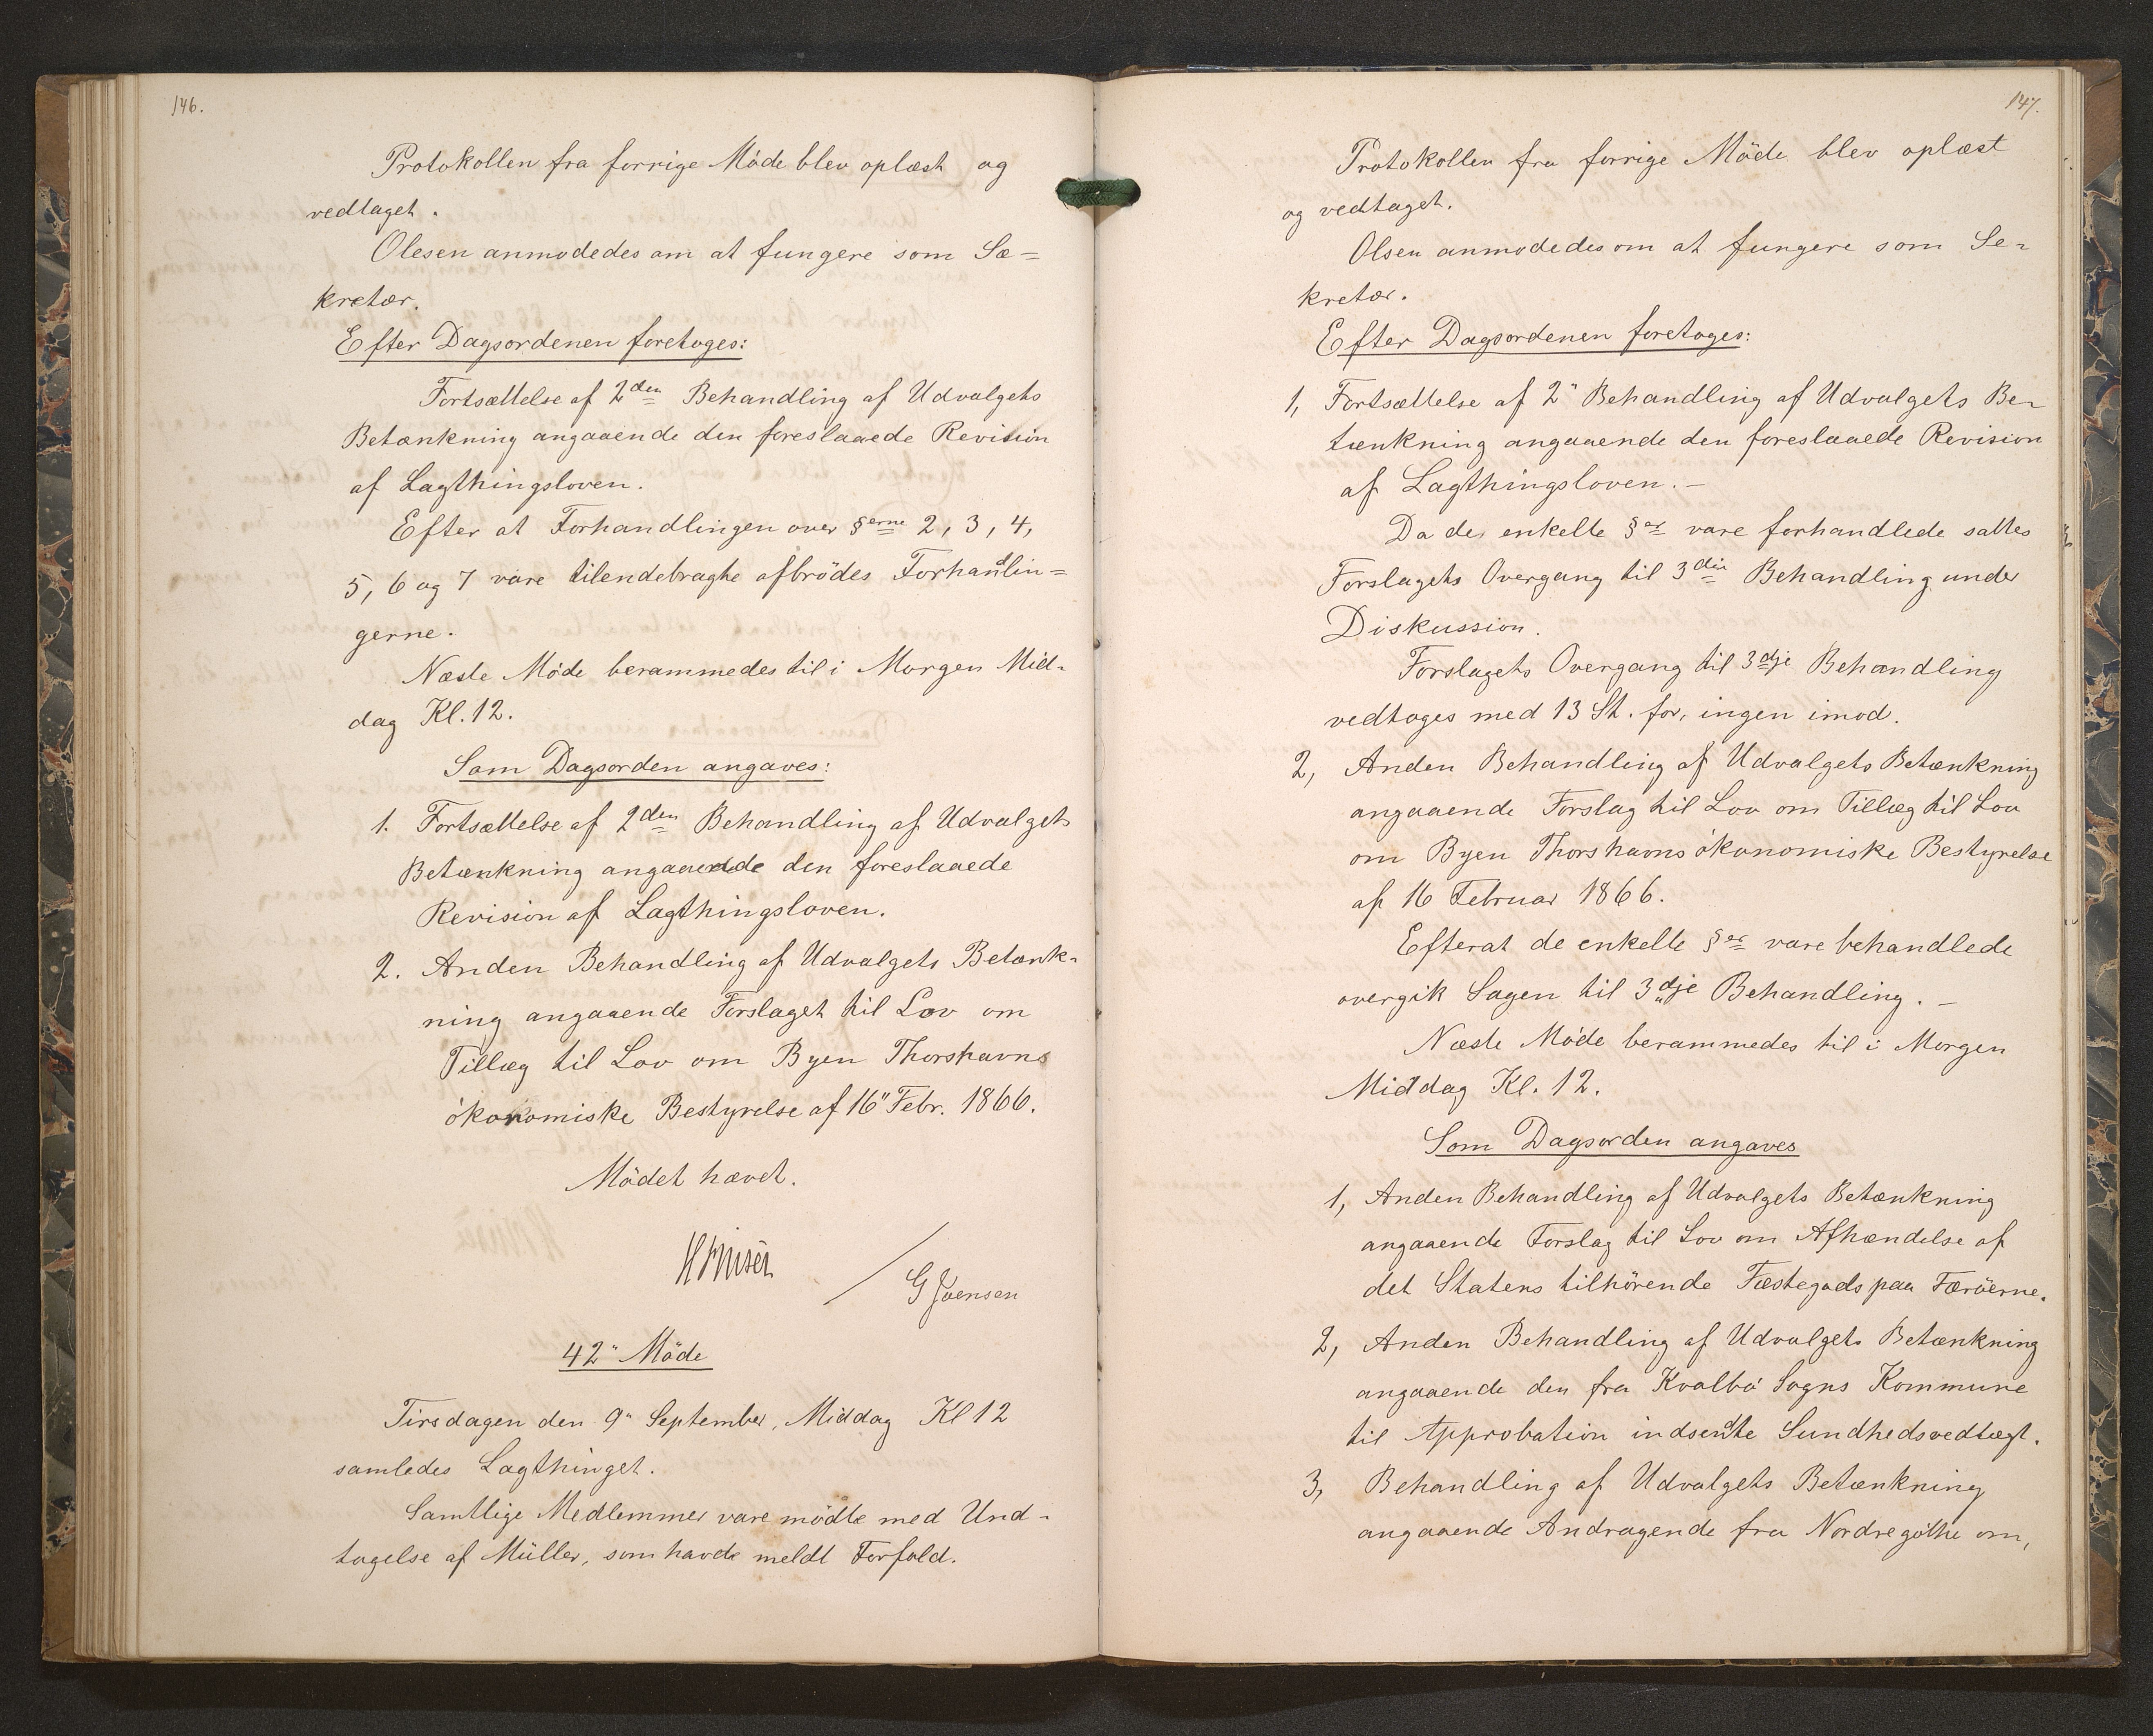 146.
Protokollen fra forrige Möde blev oplæst og
vedtaget.
Olesen anmodedes om at fungere som Sæ=
kretær.
Efter Dagsordenen foretoges:
Fortsættelse af 2den Behandling af Udvalgets
Betænkning angaaende den foreslaaede Revision
af Lagthingsloven.
Efter at Forhandlingen over §erne 2, 3, 4,
5, 6 og 7 vare tilendebragte afbrödes Forhandlin=
gerne.
Næste Möde berammedes til i Morgen Mid-
dag Kl. 12.
Som Dagsorden angaves:
1. Fortsættelse af 2den Behandling af Udvalgets
Betænkning angaaende den foreslaaede
Revision af Lagthingsloven.
2. Anden Behandling af Udvalgets Betænk-
ning angaaende Forslaget til Lov om
Tillæg til Lov om Byen Thorshavns
ökonomiske Bestyrelse af 16" Febr. 1866.
Mödet hævet.
/ G Joensen
42" Möde
Tirsdagen den 9" September, Middag Kl 12
samledes Lagthinget.
Samtlige Medlemmer vare mödte med Und-
tagelse af Müller, som havde meldt Forfald.
147.
Protokollen fra forrige Möde blev oplæst
og vedtaget.
Olsen anmodedes om at fungere som Se-
kretær.
Efter Dagsordenen foretoges:
1, Fortsættelse af 2" Behandling af Udvalgets Be-
tænkning angaaende den foreslaaede Revision
af Lagthingsloven. -
Da de enkelte §er vare forhandlede sattes
Forslagets Overgang til 3die Behandling under
Diskussion.
Forslagets Overgang til 3dje Behandling
vedtoges med 13 St. for, ingen imod.
2, Anden Behandling af Udvalgets Betænkning
angaaende Forslag til Lov om Tillæg til Lov
om Byen Thorshavns ökonomiske Bestyrelse
af 16 Februar 1866.
Efterat de enkelte §er vare behandlede
overgik Sagen til 3dje Behandling. -
Næste Möde berammedes til i Morgen
Middag Kl. 12.
Som Dagsorden angaves
1, Anden Behandling af Udvalgets Betænkning
angaaende Forslag til Lov om Afhændelse af
det Statens tilhörende Fæstegods paa Færöerne.
2, Anden Behandling af Udvalgets Betænkning
angaaende den fra Kvalbö Sogns Kommune
til Approbation indsendte Sundhedsvedtægt.
3, Behandling af Udvalgets Betænkning
angaaende Andragende fra Nordregöthe om,